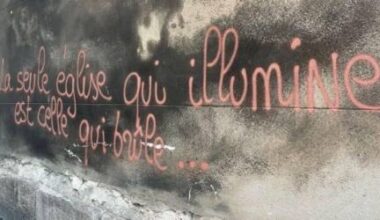 la seule église qui illumine
est celle qui brûle...